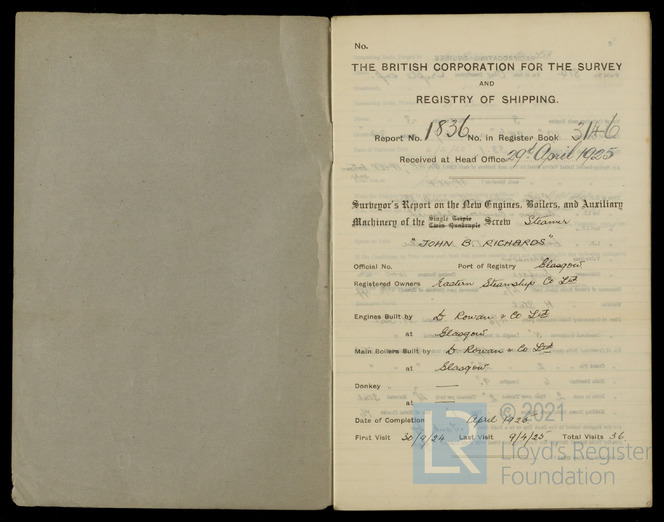 No.
THE BRITISH CORPORATION FOR THE SURVEY
AND
REGISTRY OF SHIPPING.
Report No. 1836 No. in Register Book 3146
Received at Head Office 29th April 1925
Surveyor's Report on the New Engines, Boilers, and Auxiliary
Machinery of the Single Triple Twin Quadruple Screw Steamer
"JOHN B. RICHARDS"
Official No. Port of Registry Glasgow
Registered Owners Eastern Steamship Co Ltd
Engines Built by D. Rowan & Co Ltd
at Glasgow
Main Boilers Built by D. Rowan & Co Ltd
at Glasgow
Donkey
at
Date of Completion April 1925
First Visit 30/9/24 Last Visit 9/4/25 Total Visits 36
© 2021
LR
Lloyd's Register
Foundation